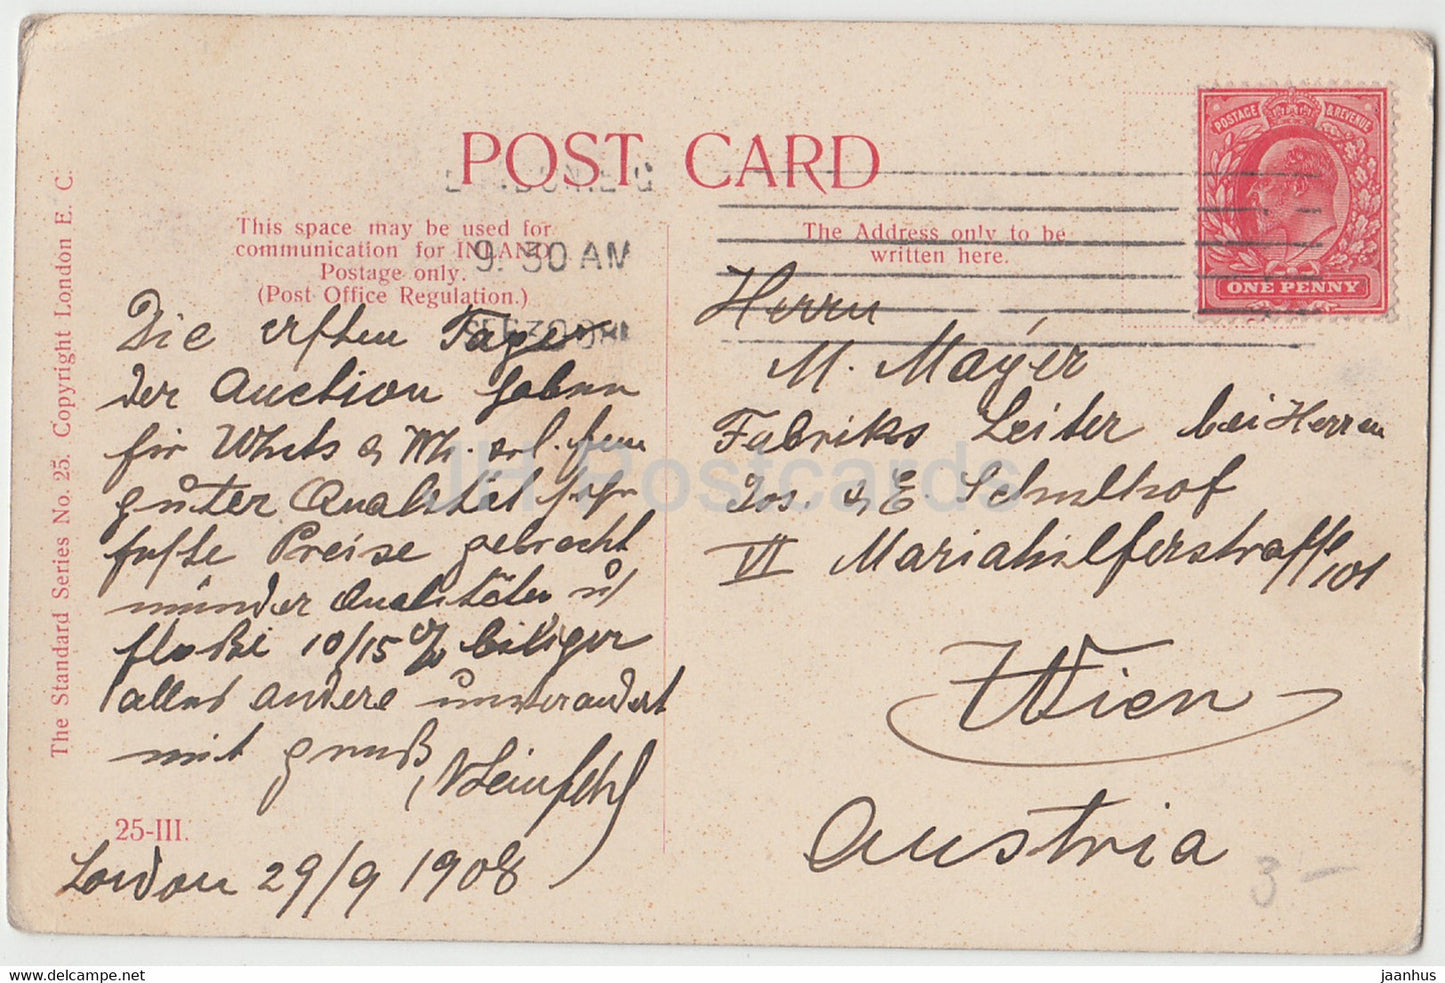 POST CARD
This space may be used for
communication for INLAND
Postage only.
(Post Office Regulation.)
The Address only to be
written here.
POSTAGE & REVENUE
ONE PENNY
9. 30 AM
SEP 30 08
The Standard Series No. 25. Copyright London E. C.
Die ersten Tage
der Auction haben
für Whits &
guter Qualität
Preise gebracht
minder Qualitäten
10/15 % billiger
alles andere unverändert
mit Gruß
25-III.
London 29/9 1908
Herrn
M. Mayer
Fabriks Leiter bei Herren
Jos. & E. Schulhof
VI Mariahilferstrasse
101
Wien
Austria
3 –
JH Postcards
www.delcampe.net
jaanhus